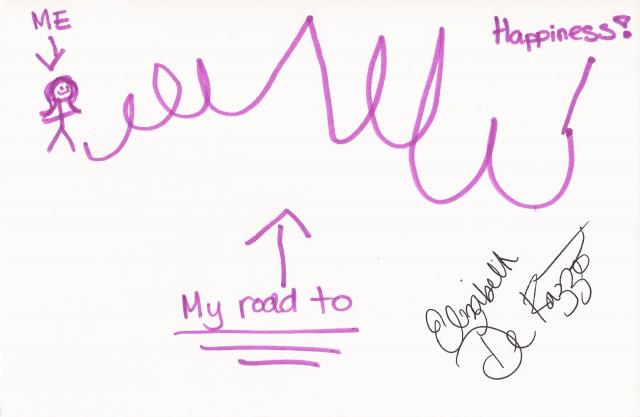 ME
Happiness!
My road to
Elizabeth
De Fazzo